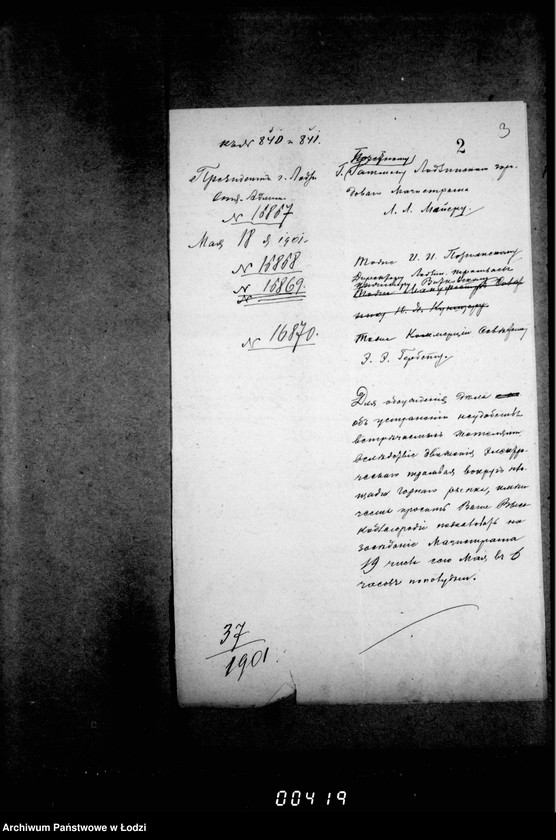 3
2
къ №№ 840 и 841.
Президентъ г. Лодзи
№ 16867
Мая 18 д. 1901.
№ 16868
№ 16869.
№ 16870.
Почетному
Г. Лодзинскаго горо
доваго Магистрата
Л. Л. Мейеру.
Тоже И. И. Познанскому
Директору Лодзин.
Тоже Коммерціи Совѣтнику
Э. Э. Гербсту.
Для обсужденія дѣла
объ устраненіи неудобствъ
встрѣчаемыхъ жителями
вслѣдствіе движенія электри
ческаго трамвая вокругъ пло
щади Горнаго рынка, имѣю
честь просить Ваше Высо
коблагородіе пожаловать на
засѣданіе Магистрата
19 числа сего Мая въ 6
часовъ пополудни.
37
1901
00419
Archiwum Państwowe w Łodzi